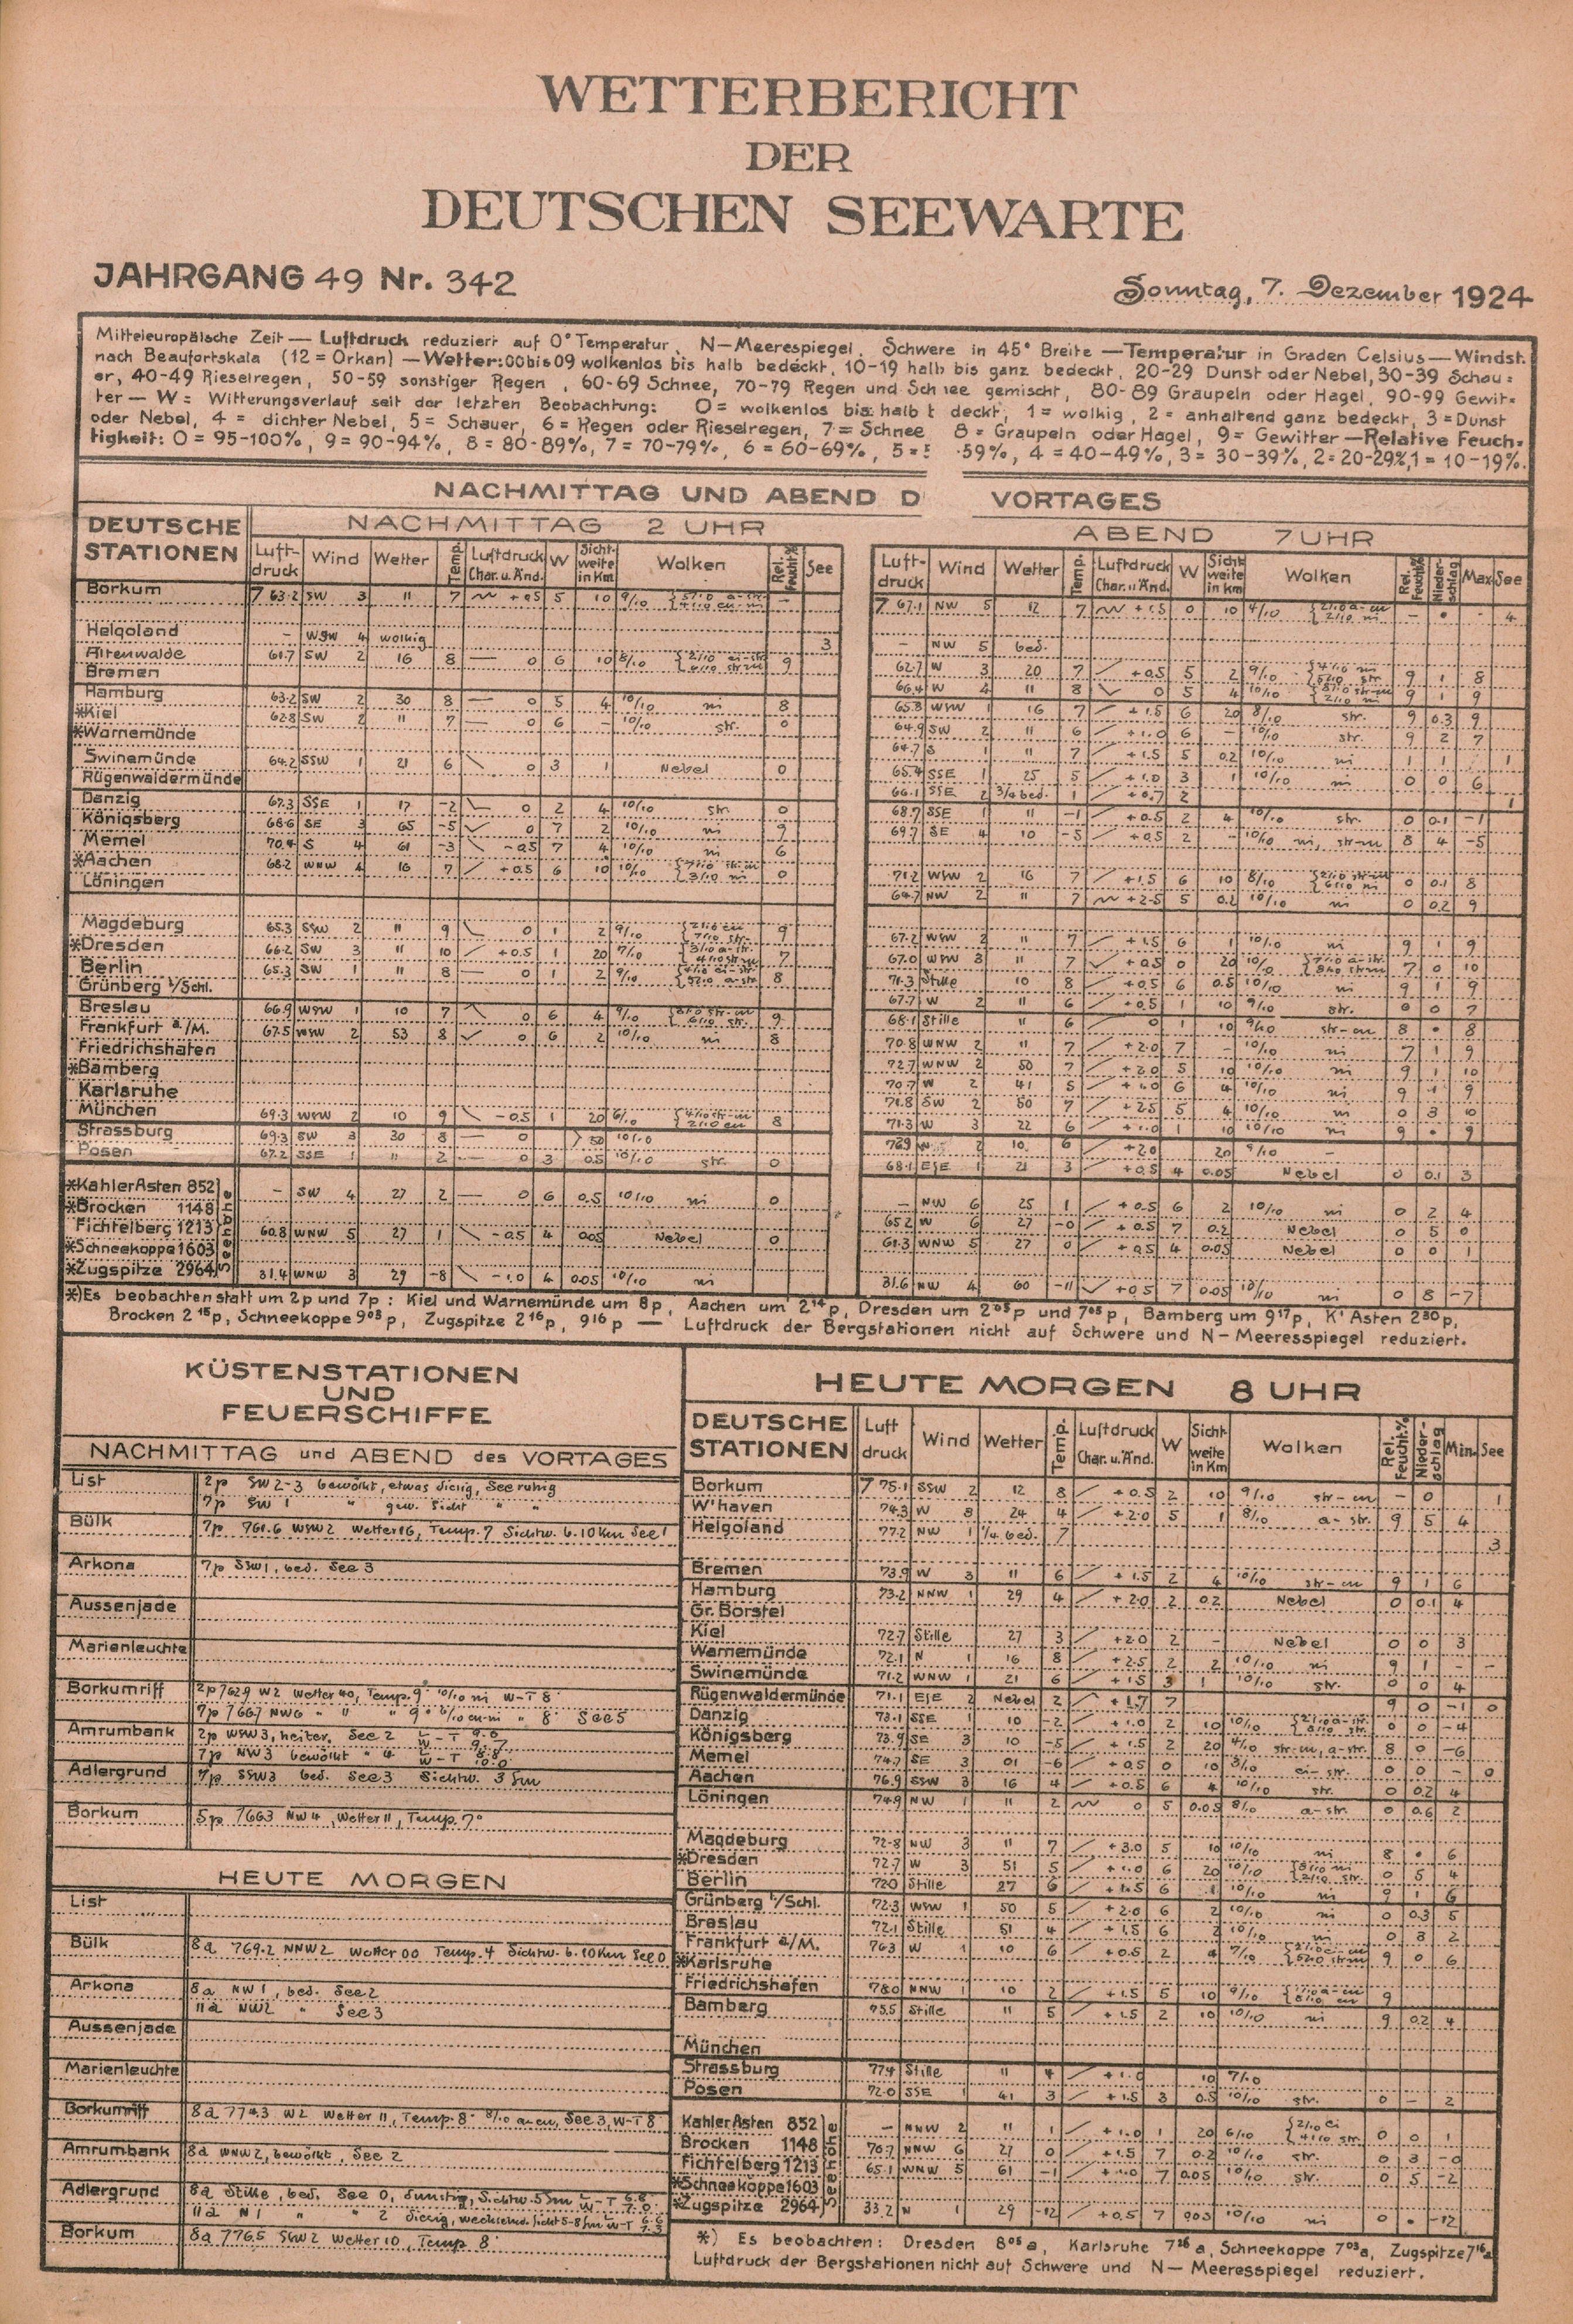 WETTERBERICHT
DER
DEUTSCHEN SEEWARTE
JAHRGANG 49 Nr. 342
Sonntag, 7. Dezember 1924
Mitteleuropäische Zeit — Luftdruck reduziert auf 0° Temperatur, N—Meerespiegel, Schwere in 45° Breite —Temperatur in Graden Celsius—Windst.
nach Beaufortskala (12 = Orkan) —Wetter:00bis09 wolkenlos bis halb bedeckt, 10-19 halb bis ganz bedeckt, 20-29 Dunst oder Nebel,30-39 Schau=
er, 40-49 Rieselregen, 50-59 sonstiger Regen , 60-69 Schnee, 70-79 Regen und Sch nee gemischt, 80-89 Graupeln oder Hagel, 90-99 Gewit=
ter — W = Witterungsverlauf seit der letzten Beobachtung: 0 = wolkenlos bis halb deckt, 1 = wolkig, 2 = anhaltend ganz bedeckt, 3 = Dunst
oder Nebel, 4 = dichter Nebel, 5 = Schauer, 6 = Regen oder Rieselregen, 7 = Schnee 8 = Graupeln oder Hagel, 9 = Gewitter —Relative Feuch=
tigkeit: 0 = 95-100%, 9 = 90-94%, 8 = 80-89%, 7 = 70-79%, 6 = 60-69%, 5 = 59%, 4 = 40-49%, 3 = 30-39%, 2=20-29%,1 = 10-19%.
NACHMITTAG UND ABEND D VORTAGES
DEUTSCHE STATIONEN
NACHMITTAG 2 UHR
ABEND 7 UHR
Luft-druck Wind Wetter Temp. Luftdruck Char. u. Änd. W Sicht-weite in Km Wolken Rel. Feucht% See
Luft-druck Wind Wetter Temp. Luftdruck Char. u. Änd. W Sicht weite in Km Wolken Rel. Feucht% Nieder-schlag Max See
Borkum 763.2 SW 3 11 7 +0.5 5 10 9/10 767.1 NW 5 12 7 +1.5 0 10 4/10 4
Helgoland – WSW 4 wolkig 3 – NW 5 bed.
Altenwalde 61.7 SW 2 16 8 — 0 6 10 8/10 9 62.7 W 3 20 7 +0.5 5 2 9/10 9 1 8
Bremen 66.4 W 4 11 8 0 5 4 10/10 9 1 9
Hamburg 63.2 SW 2 30 8 — 0 5 4 10/10 ni 8 65.8 WSW 1 16 7 +1.5 6 20 8/10 str. 9 0.3 9
*Kiel 62.8 SW 2 11 7 — 0 6 – 10/10 str. 0 64.9 SW 2 11 6 +1.0 6 – 10/10 str. 9 2 7
*Warnemünde 64.7 S 1 11 7 +1.5 5 0.2 10/10 ni 1 1 1
Swinemünde 64.2 SSW 1 21 6 0 3 1 Nebel 0 65.4 SSE 1 25 5 +1.0 3 1 10/10 ni 0 0 6
Rügenwaldermünde 66.1 SSE 2 3/4 bed. 1 +0.7 2 1
Danzig 67.3 SSE 1 17 -2 0 2 4 10/10 str. 0 68.7 SSE 1 11 -1 +0.5 2 4 10/10 str. 0 0.1 -1
Königsberg 68.6 SE 3 65 -5 0 7 2 10/10 ni 9 69.7 SE 4 10 -5 +0.5 2 – 10/10 ni, str-cu 8 4 -5
Memel 70.4 S 4 61 -3 -0.5 7 4 10/10 ni 6
*Aachen 68.2 WNW 4 16 7 +0.5 6 10 10/10 0 71.2 WSW 2 16 7 +1.5 6 10 8/10 0 0.1 8
Löningen 64.7 NW 2 11 7 +2.5 5 0.2 10/10 ni 0 0.2 9
Magdeburg 65.3 SSW 2 11 9 0 1 2 9/10 9 67.2 WSW 2 11 7 +1.5 6 1 10/10 ni 9 1 9
*Dresden 66.2 SW 3 11 10 +0.5 1 20 7/10 7 67.0 WSW 3 11 7 +0.5 0 20 10/10 7 0 10
Berlin 65.3 SW 1 11 8 — 0 1 2 9/10 8 71.3 Stille 10 8 +0.5 6 0.5 10/10 ni 9 1 9
Grünberg i/Schl. 67.7 W 2 11 6 +0.5 1 10 9/10 str. 0 0 7
Breslau 66.9 WSW 1 10 7 0 6 4 9/10 9 68.1 Stille 11 6 0 1 10 9/10 str-cu 8 8
Frankfurt a./M. 67.5 WSW 2 53 8 0 6 2 10/10 ni 8 70.8 WNW 2 11 7 +2.0 7 – 10/10 ni 7 1 9
Friedrichshafen 72.7 WNW 2 50 7 +2.0 5 10 10/10 ni 9 1 10
*Bamberg 70.7 W 2 41 5 +1.0 6 4 10/10 ni 9 1 9
Karlsruhe 71.8 SW 2 50 7 +2.5 5 4 10/10 ni 0 3 10
München 69.3 WSW 2 10 9 -0.5 1 20 6/10 8 71.3 W 3 22 6 +1.0 1 10 10/10 ni 9 9
Strassburg 69.3 SW 3 30 8 — 0 >50 10/10 2 10 6 +2.0 20 9/10 –
Posen 67.2 SSE 1 11 2 — 0 3 0.5 10/10 str. 0 68.1 ESE 1 21 3 +0.5 4 0.05 Nebel 0 0.1 3
Seehöhe
*Kahler Asten 852 – SW 4 27 2 — 0 6 0.5 10/10 ni 0 – NW 6 25 1 +0.5 6 2 10/10 ni 0 2 4
*Brocken 1148 65.2 W 6 27 -0 +0.5 7 0.2 Nebel 0 5 0
Fichtelberg 1213 60.8 WNW 5 27 1 -0.5 4 0.05 Nebel 0 61.3 WNW 5 27 0 +0.5 4 0.05 Nebel 0 0 1
*Schneekoppe 1603
*Zugspitze 2964 31.4 WNW 3 29 -8 -1.0 4 0.05 10/10 ni 31.6 NW 4 60 -11 +0.5 7 0.05 10/10 ni 0 8 -7
*)Es beobachten statt um 2p und 7p : Kiel und Warnemünde um 8p, Aachen um 2¹⁴p, Dresden um 2⁰⁵p und 7⁰⁵p, Bamberg um 9¹⁷p, K' Asten 2³⁰p,
Brocken 2¹⁵p, Schneekoppe 9⁰³p, Zugspitze 2¹⁶p, 9¹⁶p — Luftdruck der Bergstationen nicht auf Schwere und N—Meeresspiegel reduziert.
KÜSTENSTATIONEN
UND
FEUERSCHIFFE
NACHMITTAG und ABEND des VORTAGES
List 2p SW2-3 bewölkt, etwas diesig, See ruhig
7p SW 1 " gew. Sicht " "
Bülk 7p 761.6 WSW2 Wetter 16, Temp. 7 Sichtw. b. 10 Km See 1
Arkona 7p SSW1, bed. See 3
Aussenjade
Marienleuchte
Borkumriff 2p 762.9 W2 Wetter 40, Temp. 9° 10/10 ni W-T 8°
7p 766.7 NW6 " 11 " 9° 6/10 cu-ni " 8° See 5
Amrumbank 2p WSW3, heiter. See 2 L-T 9.0 W-T 9.7
7p NW3 bewölkt " 4 L-T 8.8 W-T 10.0
Adlergrund 7p SSW3 bed. See 3 Sichtw. 3 Sm
Borkum 5p 766.3 NW4, Wetter 11, Temp. 7°
HEUTE MORGEN
List
Bülk 8a 769.2 NNW2 Wetter 00 Temp. 4 Sichtw. b. 10 Km See 0
Arkona 8a NW1, bed. See 2
11a NW2 " See 3
Aussenjade
Marienleuchte
Borkumriff 8a 774.3 W2 Wetter 11, Temp. 8° 8/10 a-cu, See 3, W-T 8°
Amrumbank 8a WNW2, bewölkt, See 2
Adlergrund 8a Stille, bed. See 0, dunstig, Sichtw. 5 Sm L-T 6.8 W-T 7.0
11a N1 " " 2 diesig, wechselnd. Sicht 5-8 Sm L-T 6.6 W-T 7.3
Borkum 8a 776.5 SSW2 Wetter 10, Temp 8°
HEUTE MORGEN 8 UHR
DEUTSCHE STATIONEN Luft druck Wind Wetter Temp. Luftdruck Char. u. Änd. W Sicht weite in Km Wolken Rel. Feucht.% Nieder-schlag Min. See
Borkum 775.1 SSW 2 12 8 +0.5 2 10 9/10 str-cu – 0 1
W'haven 74.3 W 8 24 4 +2.0 5 1 8/10 a-str. 9 5 4
Helgoland 77.2 NW 1 1/4 bed. 7 3
Bremen 73.9 W 3 11 6 +1.5 2 4 10/10 str-cu 9 1 6
Hamburg 73.2 NNW 1 29 4 +2.0 2 0.2 Nebel 0 0.1 4
Gr. Borstel
Kiel 72.7 Stille 27 3 +2.0 2 – Nebel 0 0 3
Warnemünde 72.1 N 1 16 8 +2.5 2 2 10/10 ni 9 1 – –
Swinemünde 71.2 WNW 1 21 6 +1.5 3 1 10/10 str. 0 0 4
Rügenwaldermünde 71.1 ESE 2 Nebel 2 +1.7 7 9 0 -1 0
Danzig 73.1 SSE 1 10 -2 +1.0 2 10 10/10 0 0 -4
Königsberg 73.9 SE 3 10 -5 +1.5 2 20 4/10 str-cu, a-str. 8 0 -6
Memel 74.7 SE 3 01 -6 +0.5 0 10 3/10 ci-str. 0 0 – 0
Aachen 76.9 SSW 3 16 4 +0.5 6 4 10/10 str. 0 0.2 4
Löningen 74.9 NW 1 11 2 0 5 0.05 8/10 a-str. 0 0.6 2
Magdeburg 72.8 NW 3 11 7 +3.0 5 10 10/10 ni 8 6
*Dresden 72.7 W 3 51 5 +1.0 6 20 10/10 0 5 4
Berlin 72.0 Stille 27 6 +1.5 6 1 10/10 ni 9 1 6
Grünberg i/Schl. 72.3 WSW 1 50 5 +2.0 6 2 10/10 ni 0 0.3 5
Breslau 72.1 Stille 51 4 +1.5 6 2 10/10 ni 0 3 2
Frankfurt a/M. 76.3 W 1 10 6 +0.5 2 4 7/10 9 0 6
*Karlsruhe
Friedrichshafen 78.0 NNW 1 10 2 +1.5 5 10 9/10 9
Bamberg 75.5 Stille 11 5 +1.5 2 10 10/10 ni 9 0.2 4
München
Strassburg 77.4 Stille 11 4 +1.0 10 7/10
Posen 72.0 SSE 1 41 3 +1.5 3 0.5 10/10 str. 0 – 2
Seehöhe
Kahler Asten 852 – NNW 2 11 1 +1.0 1 20 6/10 0 0 1
Brocken 1148 76.7 NNW 6 27 0 +1.5 7 0.2 10/10 str. 0 3 -0
Fichtelberg 1213 65.1 WNW 5 61 -1 +1.0 7 0.05 10/10 str. 0 5 -2
*Schneekoppe 1603
*Zugspitze 2964 33.2 N 1 29 -12 +0.5 7 0.03 10/10 ni 0 -12
*) Es beobachten: Dresden 8⁰⁵a, Karlsruhe 7²⁶a, Schneekoppe 7⁰³a, Zugspitze 7¹⁶a
Luftdruck der Bergstationen nicht auf Schwere und N—Meeresspiegel reduziert.